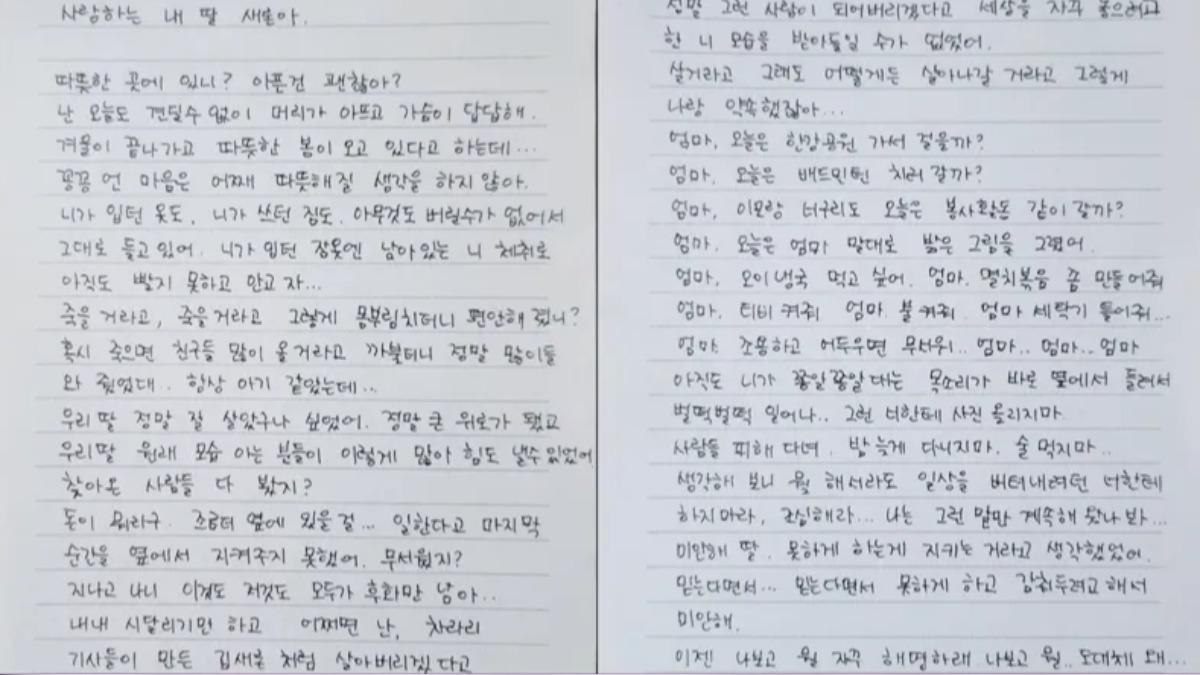 사랑하는 내 딸 새론아.
따뜻한 곳에 있니? 아픈건 괜찮아?
난 오늘도 견딜수 없이 머리가 아프고 가슴이 답답해.
겨울이 끝나가고 따뜻한 봄이 오고 있다고 하는데...
꽁꽁 언 마음은 어째 따뜻해질 생각을 하지 않아.
니가 입던 옷도, 니가 쓰던 짐도, 아무것도 버릴수가 없어서
그대로 들고 있어. 니가 입던 잠옷엔 남아있는 니 체취로
아직도 빨지 못하고 안고 자...
죽을 거라고, 죽을거라고 그렇게 몸부림치더니 편안해 졌니?
혹시 죽으면 친구들 많이 올거라고 까불더니 정말 많이들
와 줬었대.. 항상 아기 같았는데...
우리 딸 정말 잘 살았구나 싶었어. 정말 큰 위로가 됐고
우리딸 원래 모습 아는 분들이 이렇게 많아 힘도 낼수 있었어
찾아온 사람들 다 봤지?
돈이 뭐라구. 조금더 옆에 있을 걸... 일한다고 마지막
순간을 옆에서 지켜주지 못했어. 무서웠지?
지나고 나니 이것도 저것도 모두가 후회만 남아..
내내 시달리기만 하고 어쩌면 난, 차라리
기사들이 만든 김새론 처럼 살아버리겠다고
정말 그런 사람이 되어버리겠다고 세상을 자꾸 등으려고
한 니 모습을 받아들일 수가 없었어.
살거라고 그래도 어떻게든 살아나갈 거라고 그렇게
나랑 약속했잖아...
엄마, 오늘은 한강공원 가서 걸을까?
엄마, 오늘은 배드민턴 치러 갈까?
엄마, 이모랑 너구리도 오늘은 봉사활동 같이 갈까?
엄마. 오늘은 엄마 말대로 밝은 그림을 그렸어.
엄마, 오이냉국 먹고 싶어. 엄마. 멸치볶음 좀 만들어줘
엄마. 티비 켜줘 엄마 불 켜줘. 엄마 세탁기 돌려줘...
엄마. 조용하고 어두우면 무서워.. 엄마.. 엄마.. 엄마
아직도 니가 쫑알쫑알 대는 목소리가 바로 옆에서 들려서
벌떡벌떡 일어나.. 그런 너한테 사진 올리지마
사람들 피해 다녀. 밤 늦게 다니지마. 술 먹지마..
생각해 보니 뭘 해서라도 일상을 버텨내려던 너한테
하지마라, 조심해라... 나는 그런 말만 계속해 왔나 봐...
미안해 딸. 못하게 하는게 지키는 거라고 생각했었어.
믿는다면서... 믿는다면서 못하게 하고 감춰두려고 해서
미안해.
이젠 나보고 뭘 자꾸 해명하래 나보고 뭘.. 도대체 왜...